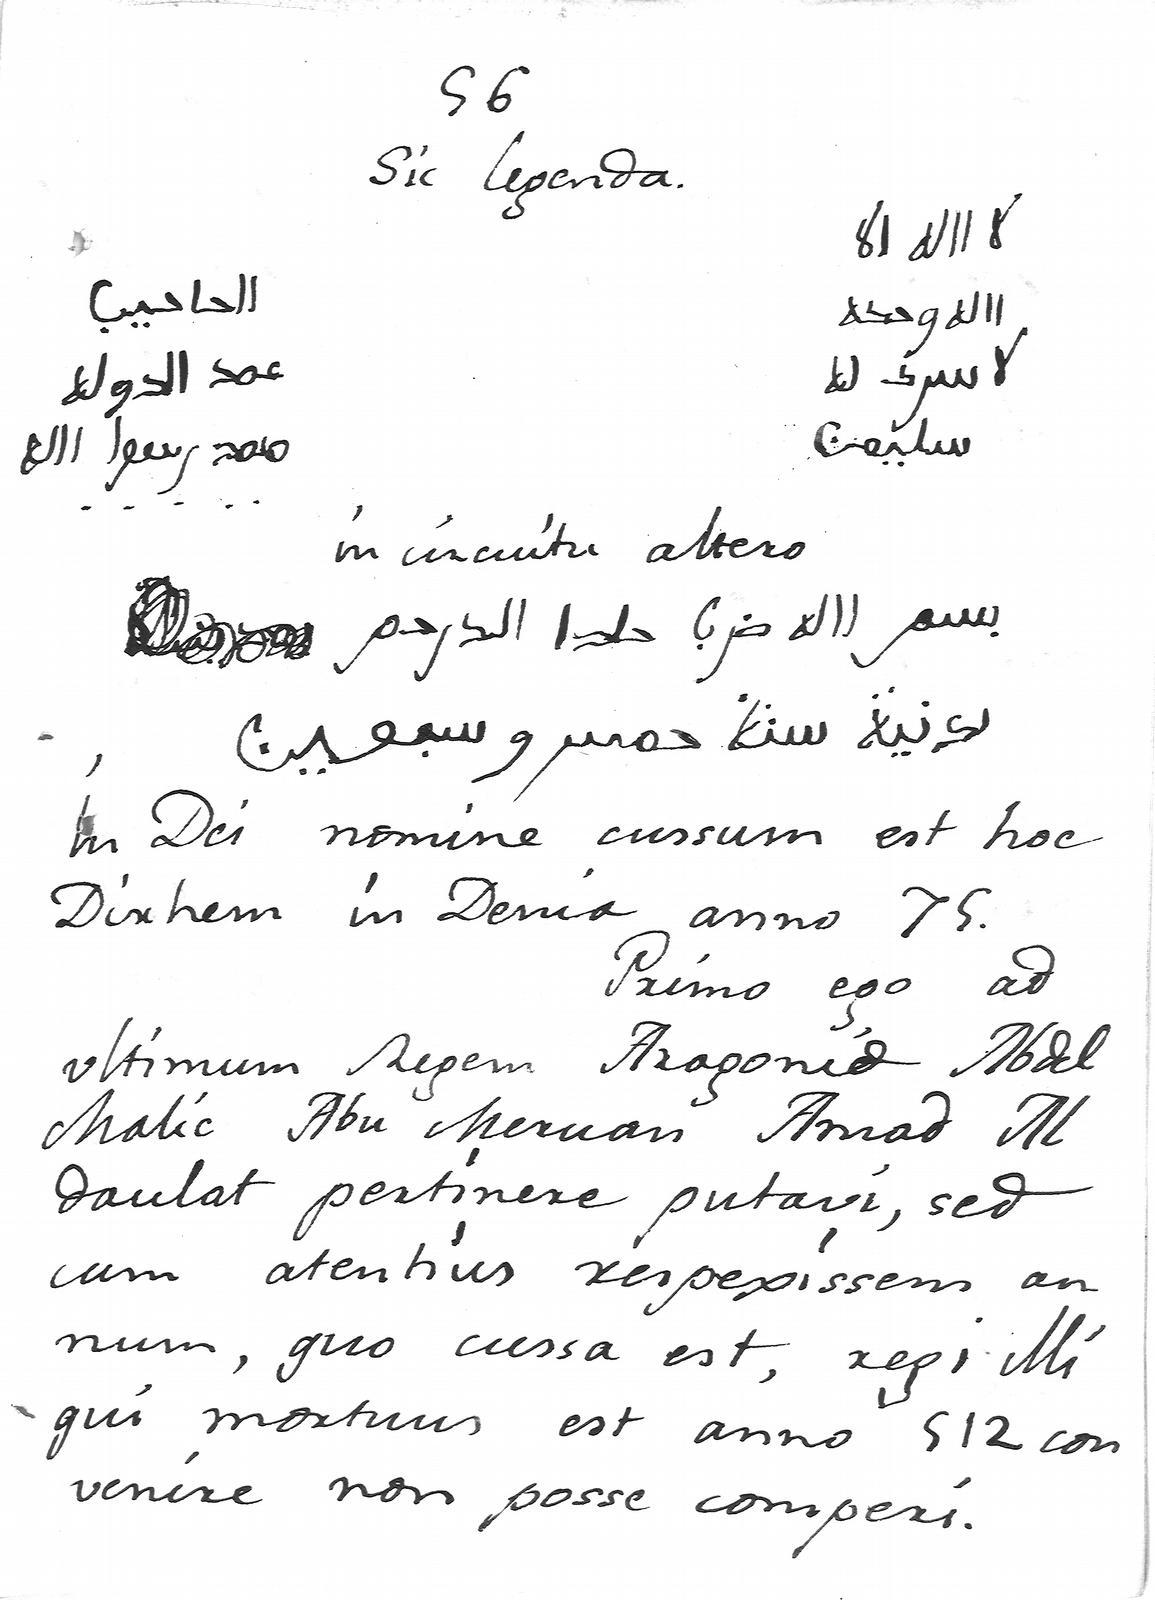 56
Sic legenda.
لا الله الا
الله وحده
لا سرىك له
سليمن
الحاحيب
عمد الدوله
محمد رسول الله
in circuitu altero
بسم الله ضرب هذا الدرهم
لدنية سنة حمس و سبعين
In Dei nomine cussum est hoc
Dirhem in Denia anno 75.
Primo ego ad
ultimum Regem Aragoniæ Abdel
Malic Abu Meruan Amad Al
daulat pertinere putavi, sed
cum atentius respexissem an
num, quo cussa est, regi illi
qui mortuus est anno 512 con
venire non posse comperi.